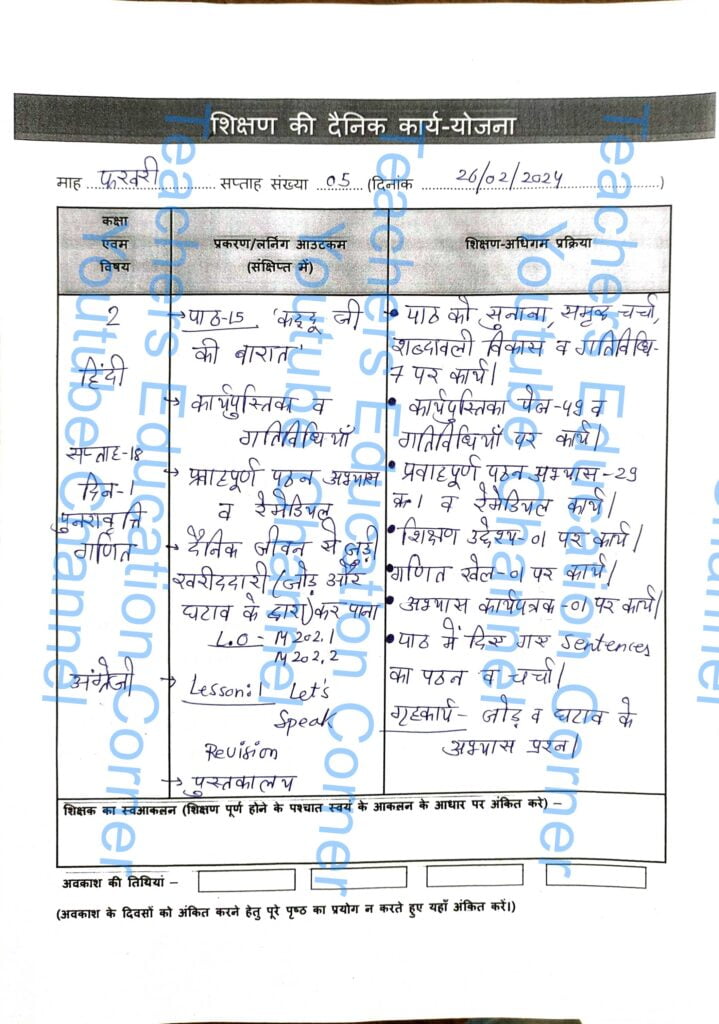 शिक्षण की दैनिक कार्य-योजना
माह फरवरी सप्ताह संख्या 05 (दिनांक 26/02/2024)
कक्षा एवम विषय
प्रकरण/लर्निंग आउटकम (संक्षिप्त में)
शिक्षण-अधिगम प्रक्रिया
2
हिंदी
सप्ताह-18
दिन-1
पुनरावृत्ति
गणित
अंग्रेजी
→ पाठ-15 'कद्दू जी
की बारात'
→ कार्यपुस्तिका व
गतिविधियाँ
→ प्रवाहपूर्ण पठन अभ्यास
व रेमेडियल
→ दैनिक जीवन से जुड़ी
खरीददारी (जोड़ और
घटाव के द्वारा) कर पाना
L.O - M 202.1
M 202.2
→ Lesson:1 Let's
Speak
Revision
→ पुस्तकालय
• पाठ को सुनाना, समूह चर्चा,
शब्दावली विकास व गतिविधि-
7 पर कार्य।
• कार्यपुस्तिका पेज-59 व
गतिविधियाँ पर कार्य।
• प्रवाहपूर्ण पठन अभ्यास-29
क-1 व रेमेडियल कार्य।
• शिक्षण उद्देश्य-01 पर कार्य।
• गणित खेल-01 पर कार्य।
• अभ्यास कार्यपत्रक-01 पर कार्य।
• पाठ में दिए गए sentences
का पठन व चर्चा।
गृहकार्य- जोड़ व घटाव के
अभ्यास प्रश्न।
शिक्षक का स्वआकलन (शिक्षण पूर्ण होने के पश्चात स्वयं के आकलन के आधार पर अंकित करे) –
अवकाश की तिथियां –
(अवकाश के दिवसों को अंकित करने हेतु पूरे पृष्ठ का प्रयोग न करते हुए यहाँ अंकित करें।)
Teachers Education Corner
Youtube Channel
Teachers Education Corner
Youtube Channel
Teachers Education Corner
Youtube Channel